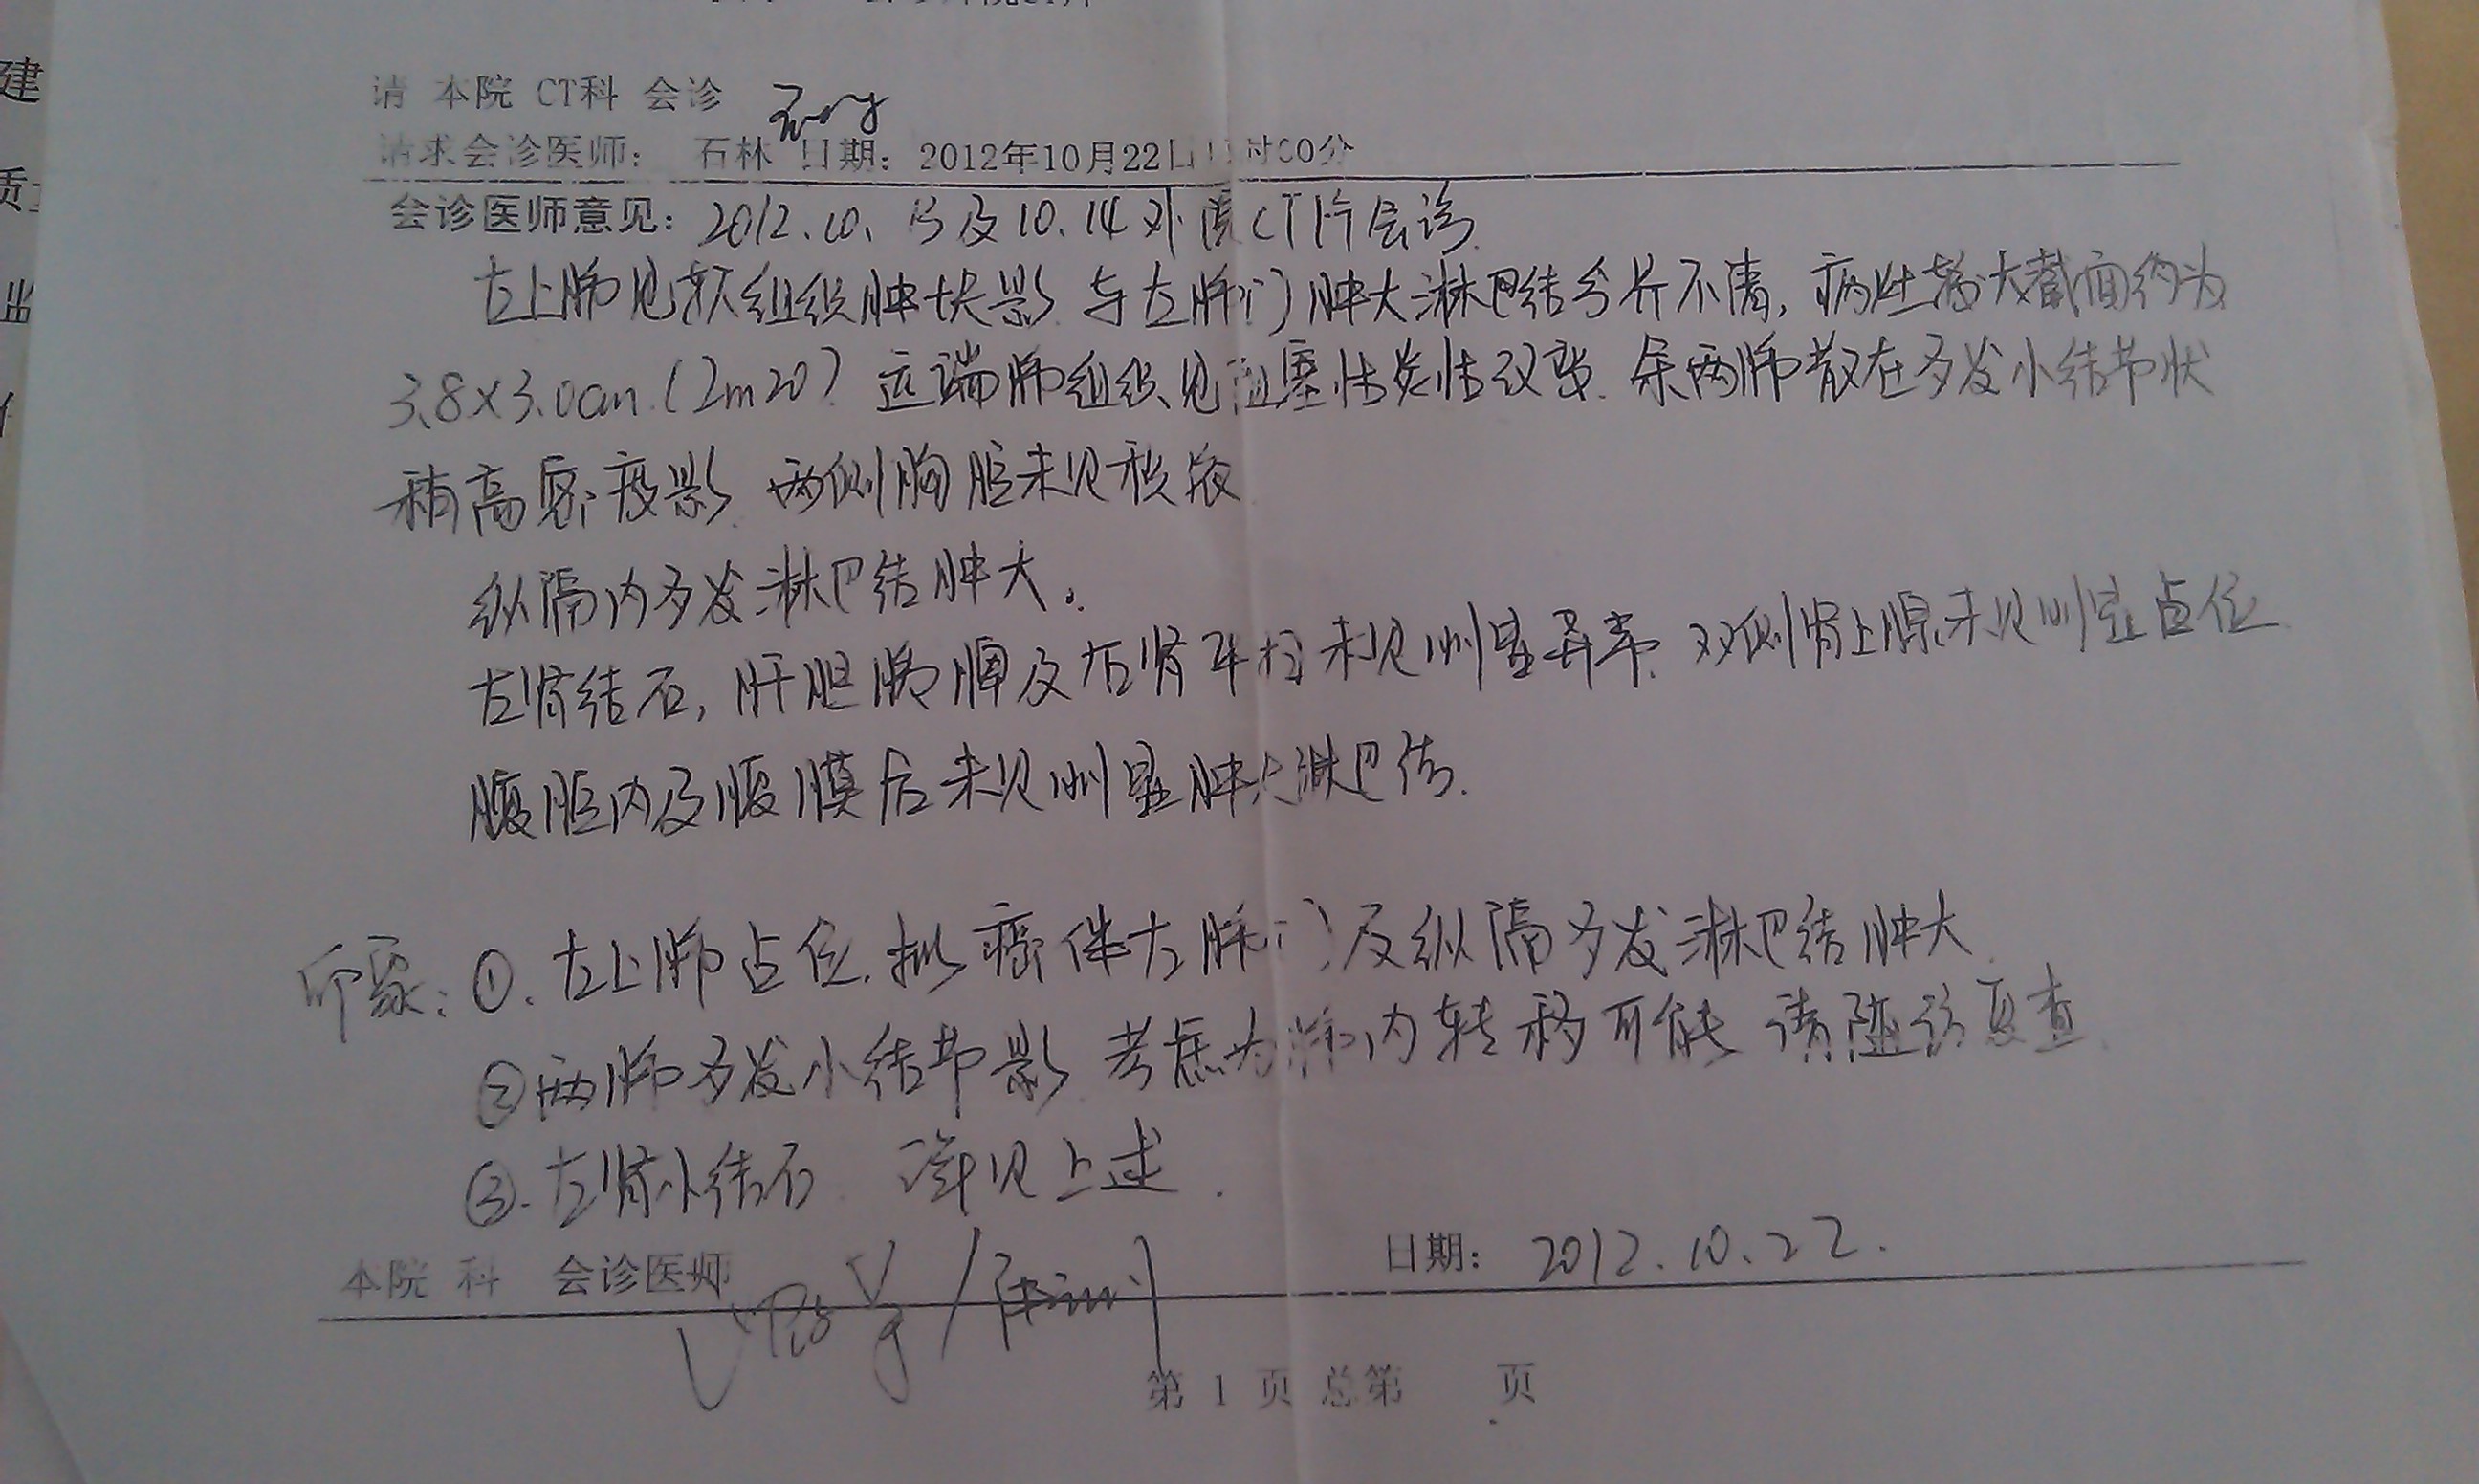 建
质
出
请 本院 CT科 会诊
请求会诊医师： 石林 日期：2012年10月22日 时00分
会诊医师意见：2012.10.13及10.14外院CT片会诊.
左上肺见软组织肿块影.与左肺门肿大淋巴结分界不清,病灶较大截面约为
3.8×3.0cm.(2m20) 远端肺组织见阻塞性炎性改变.余两肺散在多发小结节状
稍高密度影.两侧胸腔未见积液
纵隔内多发淋巴结肿大。
左肾结石,肝胆胰脾及右肾平扫未见明显异常.双侧肾上腺未见明显占位.
腹腔内及腹膜后未见明显肿大淋巴结.
印象:①.左上肺占位.拟癌伴左肺门及纵隔多发淋巴结肿大.
②两肺多发小结节影.考虑为肺内转移可能 请随访复查.
③.左肾小结石. 详见上述.
本院 科 会诊医师 日期：2012.10.22.
第 1 页 总第 页